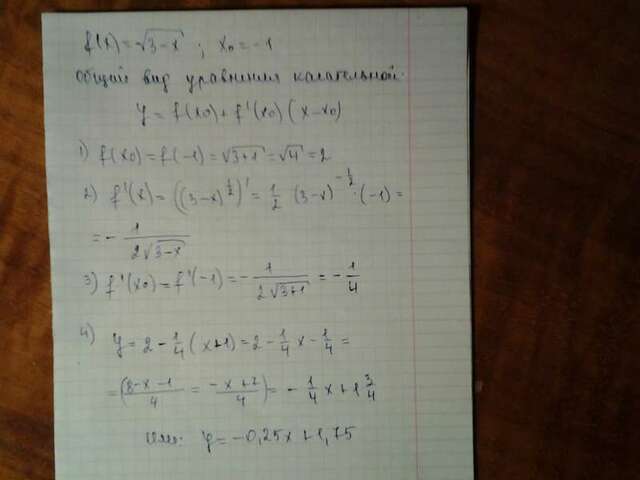 f(x) = √(3-x) ; x₀ = -1
общий вид уравнения касательной:
y = f(x₀) + f'(x₀) (x-x₀)
1) f(x₀) = f(-1) = √(3+1) = √4 = 2
2) f'(x) = ((3-x)^(1/2))' = 1/2 (3-x)^(-1/2) · (-1) =
= - 1/(2√(3-x))
3) f'(x₀) = f'(-1) = - 1/(2√(3+1)) = - 1/4
4) y = 2 - 1/4 (x+1) = 2 - 1/4 x - 1/4 =
= ((8-x-1)/4 = (-x+7)/4) = - 1/4 x + 1 3/4
или: y = -0,25x + 1,75